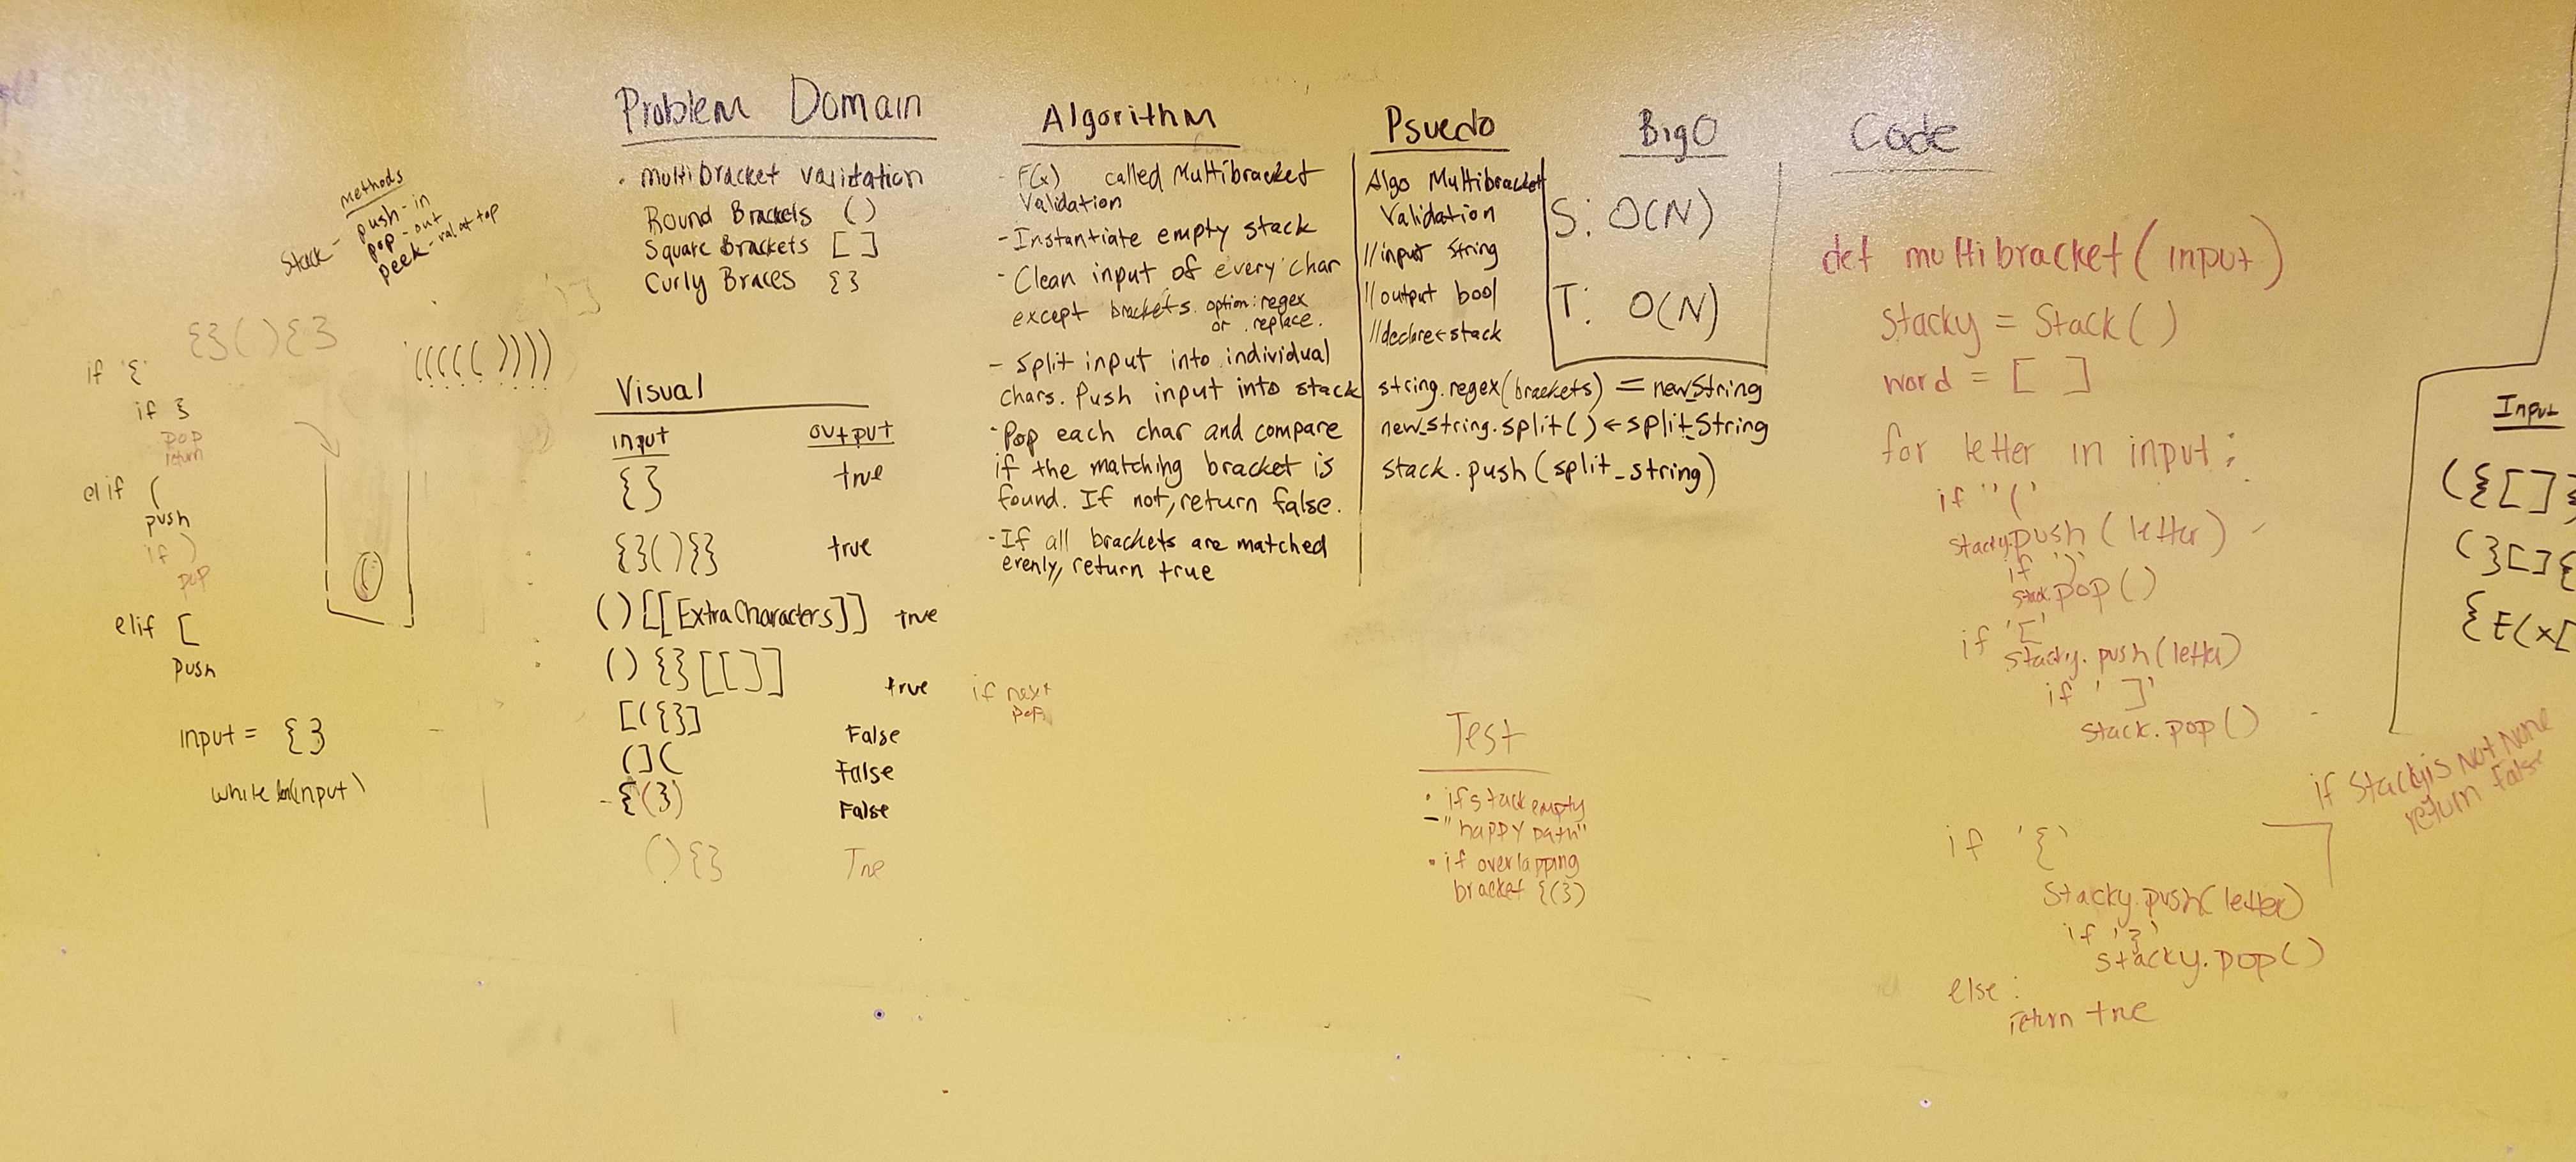 Stack -
methods
push - in
pop - out
peek - val at top
{}(){}
((((())))
if '{'
if }
pop
return
elif (
push
if )
pop
elif [
push
input = {}
while len(input)
Problem Domain
. multibracket validation
Round Brackets ()
Square Brackets []
Curly Braces {}
Visual
input output
{} true
{}(){} true
()[[ExtraCharacters]] true
(){}[[]] true
[({}] False
(]( False
{(}) False
(){} True
Algorithm
- F(x) called Multibracket
Validation
- Instantiate empty stack
- Clean input of every char
except brackets. option: regex
or .replace.
- split input into individual
chars. Push input into stack
- Pop each char and compare
if the matching bracket is
found. If not, return false.
- If all brackets are matched
evenly, return true
if next
pop
Psuedo
Algo Multibracket
Validation
//input string
//output bool
//declare < stack
string.regex(brackets) = new_string
new_string.split() ← split_string
stack.push(split_string)
BigO
S: O(N)
T: O(N)
Test
• if stack empty
- "happy path"
• if overlapping
bracket {(})
Code
def multibracket(input)
stacky = Stack()
word = [ ]
for letter in input:
if '('
stacky.push(letter)
if ')'
stack.pop()
if '['
stacky.push(letter)
if ']'
stack.pop()
if Stacky is Not None
return False
if '{'
Stacky.push(letter)
if '}'
stacky.pop()
else:
return true
Input
({[]}
(}[]{
{E(x[